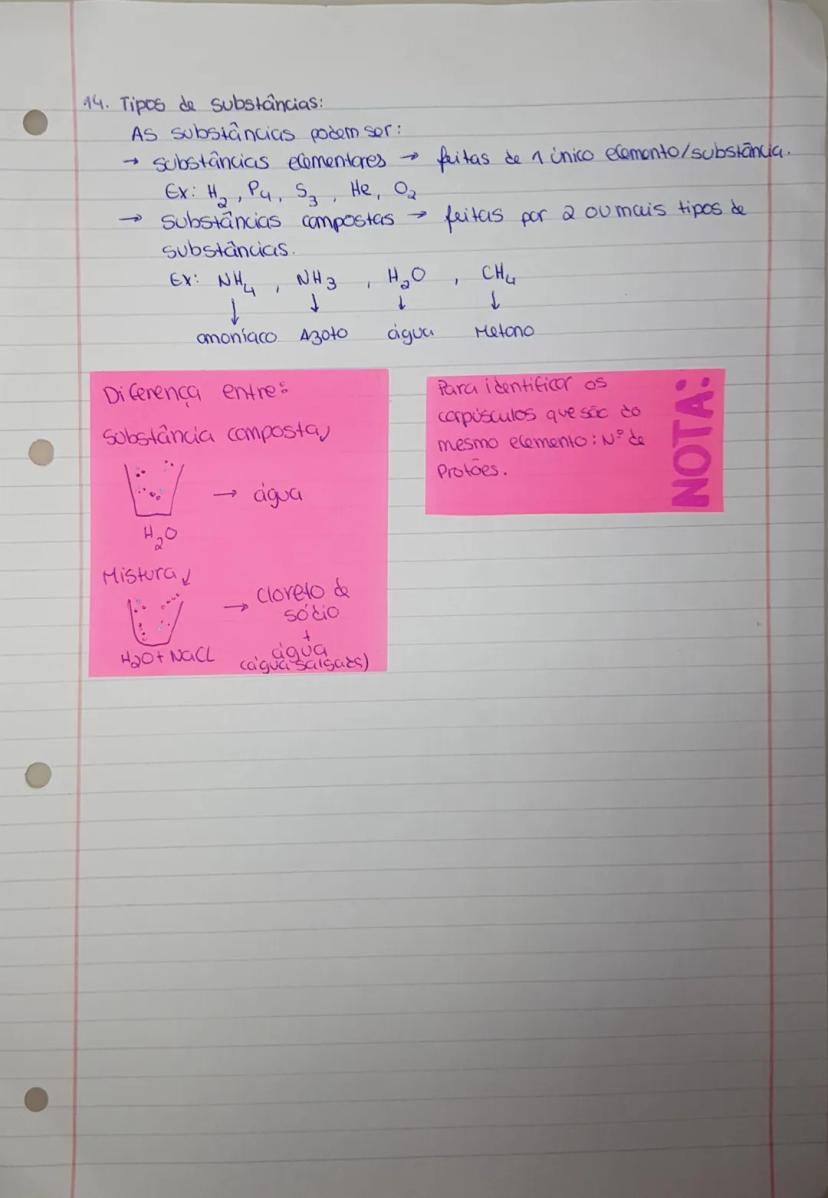 14. Tipos de substâncias:
As substâncias podem ser:
→ substâncias elementares → feitas de 1 único elemento/substância.
Ex: H₂, P₄, S₃, He, O₂
→ Substâncias compostas → feitas por 2 ou mais tipos de
substâncias.
Ex: NH₄, NH₃, H₂O, CH₄
↓ ↓ ↓ ↓
amoníaco Azoto água Metano
Diferença entre:
Substância composta
→ água
H₂O
Mistura
→ cloreto de
sódio
+
água
H₂O + NaCL (água salgada)
Para identificar os
corpúsculos que são do
mesmo elemento: Nº de
Protões.
NOTA: